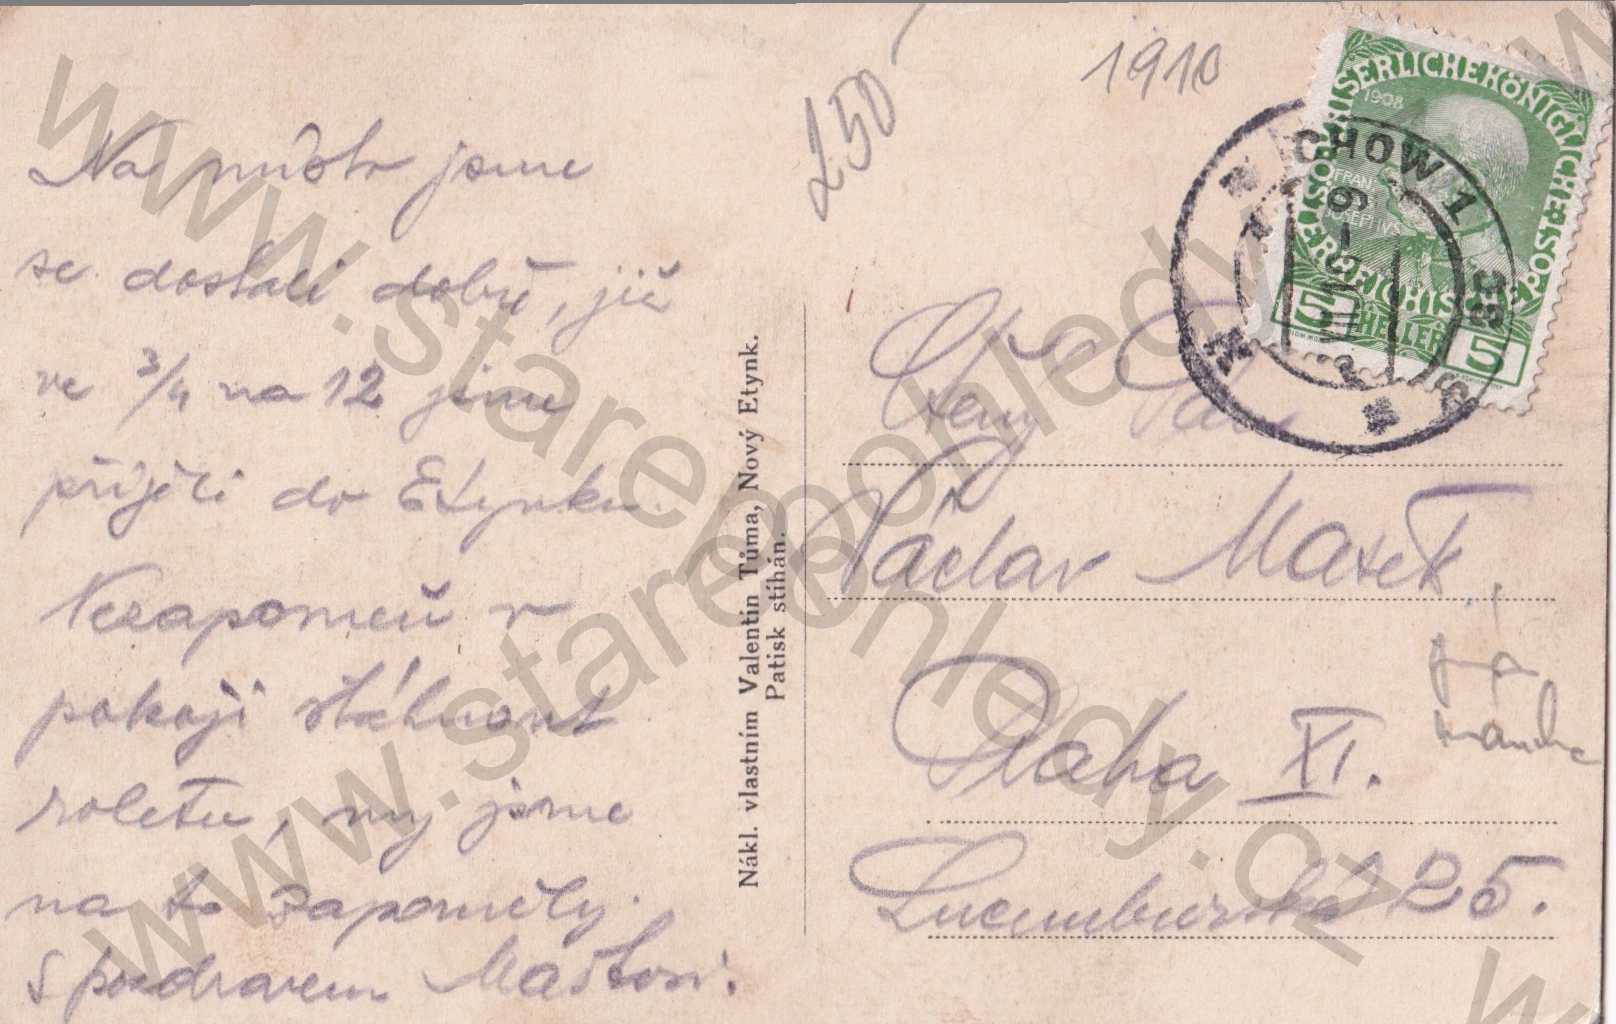 Na místo jsme
se dostali dobře, již
ve 3/4 na 12 jsme
přijeli do Etynku.
Nezapomeň v
pokoji stáhnout
roletu, my jsme
na to zapoměly.
S pozdravem Maštovi.
Nákl. vlastním Valentin Tůma, Nový Etynk.
Patisk stíhán.
250
1910
KAISERLICHE KÖNIGLICHE ÖSTERREICHISCHE POST
1908
FRAN
IOSEPHVS
5 HELLER 5
CHOW 1
Ctěný Pan
Václav Mašek
Praha XI.
Lucemburská 25.
www.starepohledy.cz
www.starepohledy.cz